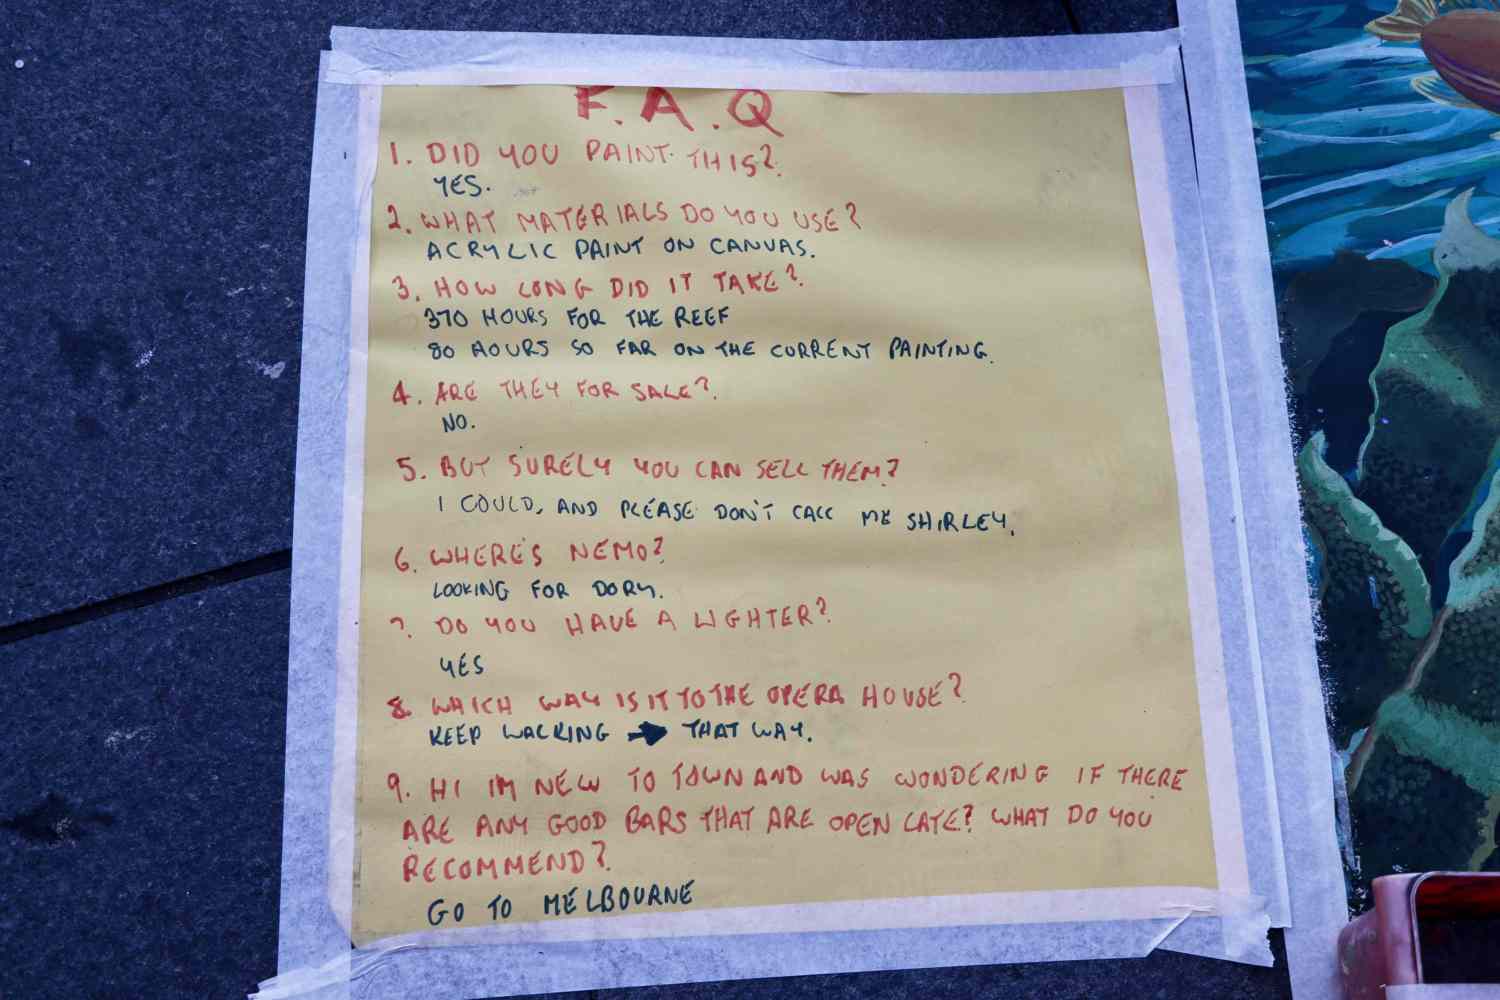 F.A.Q
1. DID YOU PAINT THIS?
YES.
2. WHAT MATERIALS DO YOU USE?
ACRYLIC PAINT ON CANVAS.
3. HOW LONG DID IT TAKE?
370 HOURS FOR THE REEF
80 HOURS SO FAR ON THE CURRENT PAINTING.
4. ARE THEY FOR SALE?
NO.
5. BUT SURELY YOU CAN SELL THEM?
I COULD, AND PLEASE DON'T CALL ME SHIRLEY.
6. WHERE'S NEMO?
LOOKING FOR DORY.
7. DO YOU HAVE A LIGHTER?
YES
8. WHICH WAY IS IT TO THE OPERA HOUSE?
KEEP WALKING → THAT WAY.
9. HI IM NEW TO TOWN AND WAS WONDERING IF THERE
ARE ANY GOOD BARS THAT ARE OPEN LATE? WHAT DO YOU
RECOMMEND?
GO TO MELBOURNE